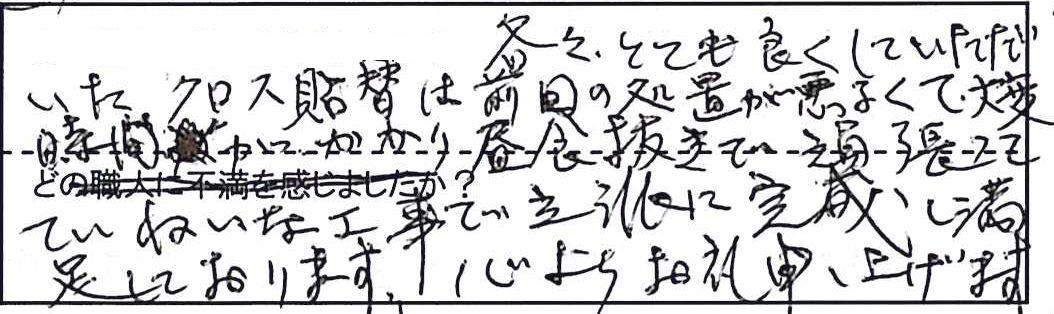 各々、とても良くしていただ
いた。クロス貼替は前回の処置が悪くて大変
時間がかかり昼食抜きで頑張って
どの職人に不満を感じましたか？
ていねいな工事で立派に完成し満
足しております。心よりお礼申し上げます